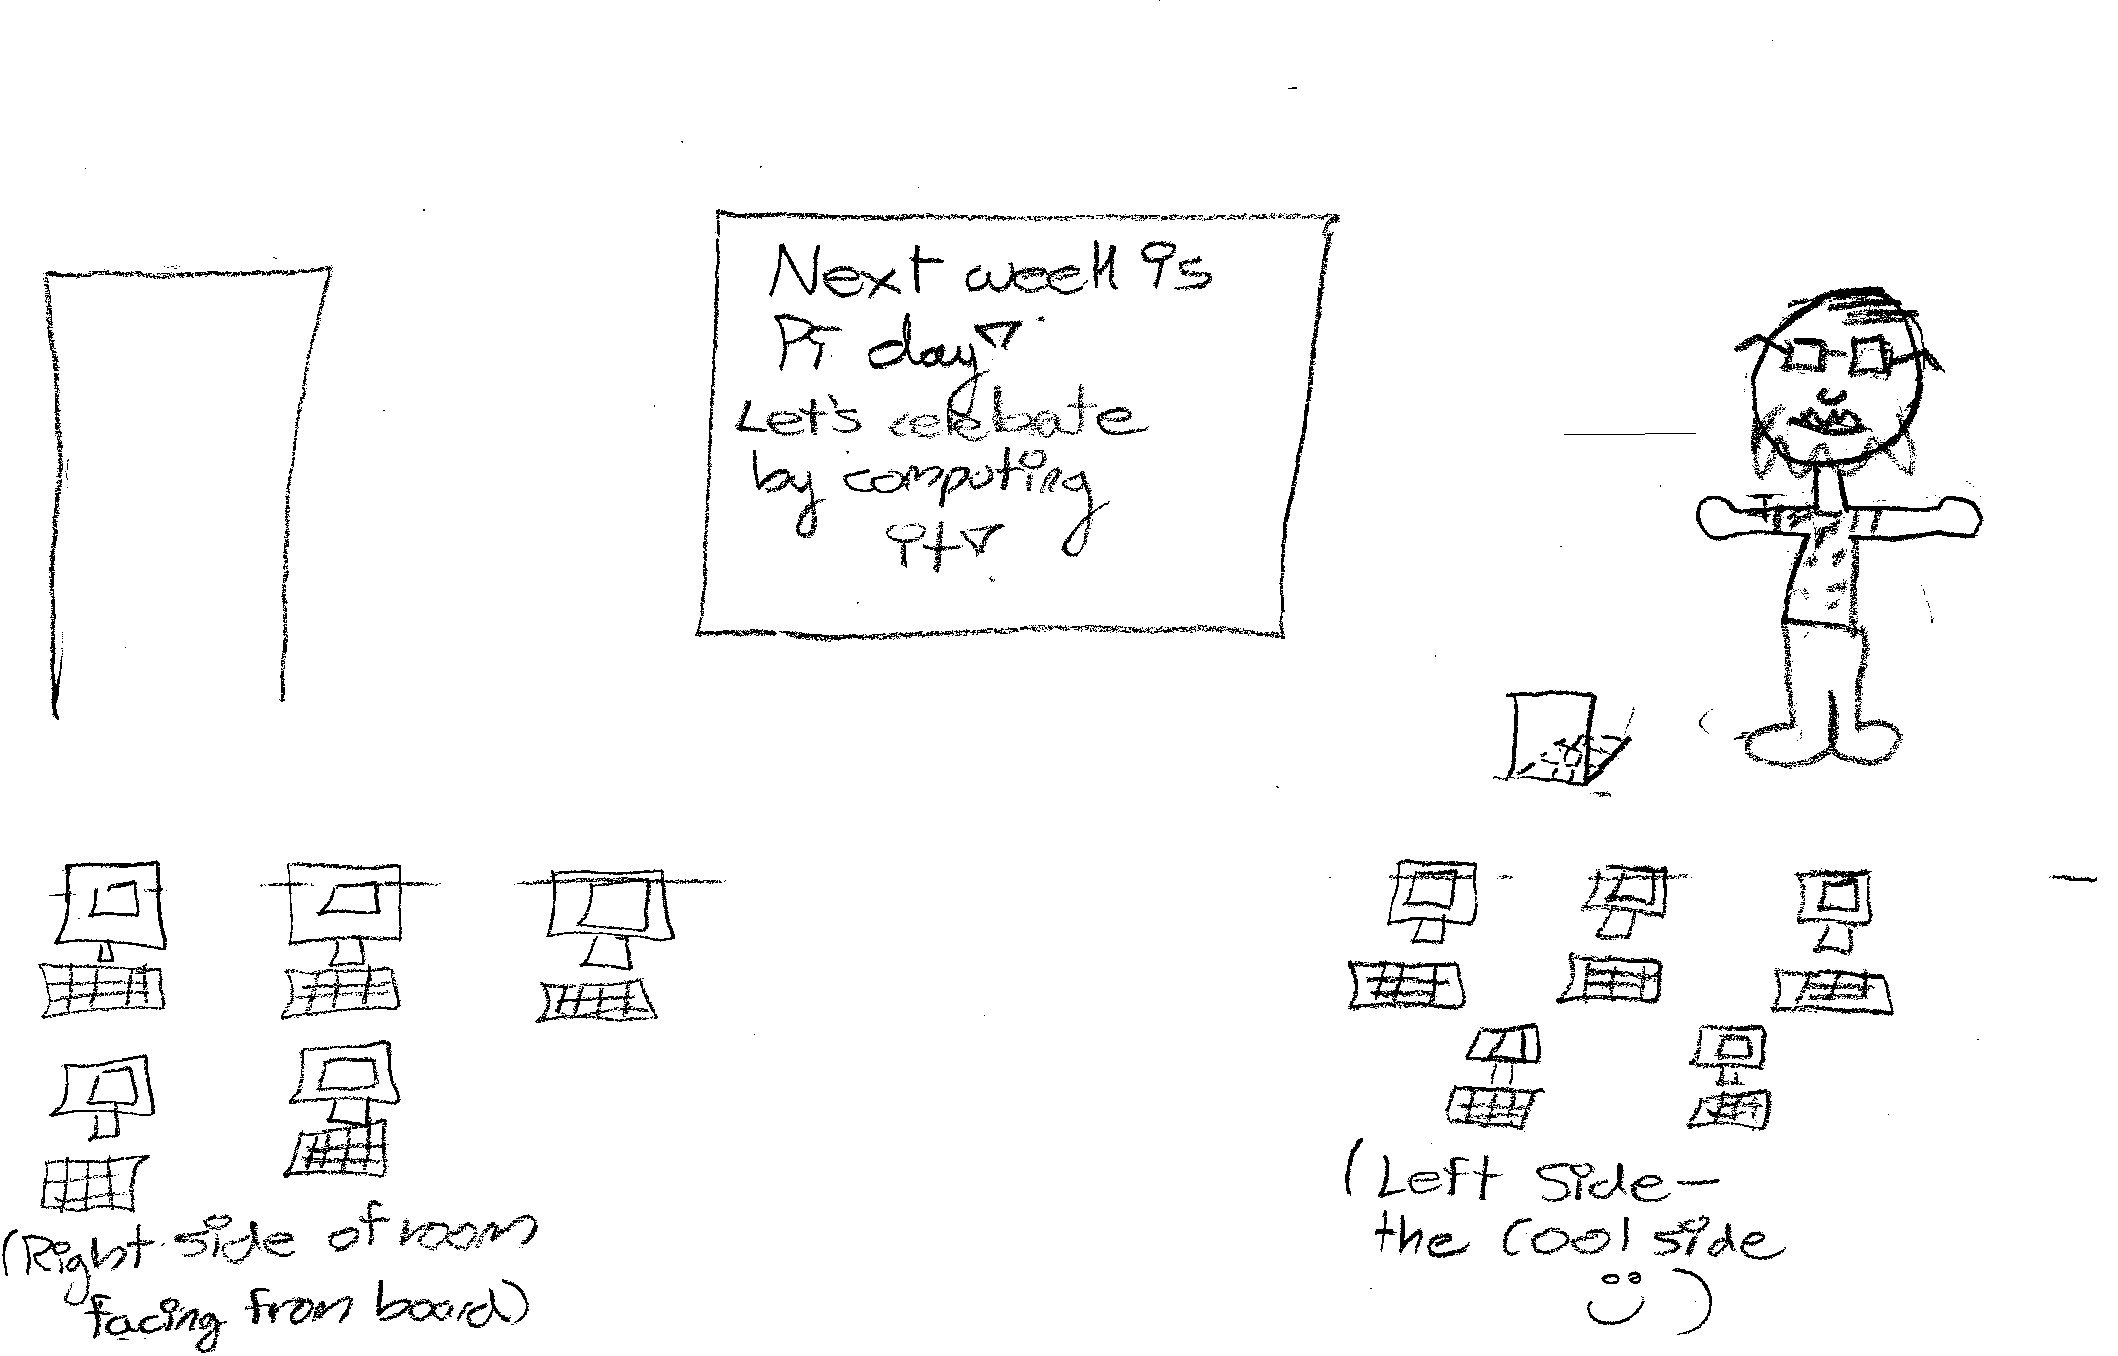 Next week is
Pi day!
Let's celebate
by computing
it!
(Right side of room
facing from board)
(Left side—
the cool side
)